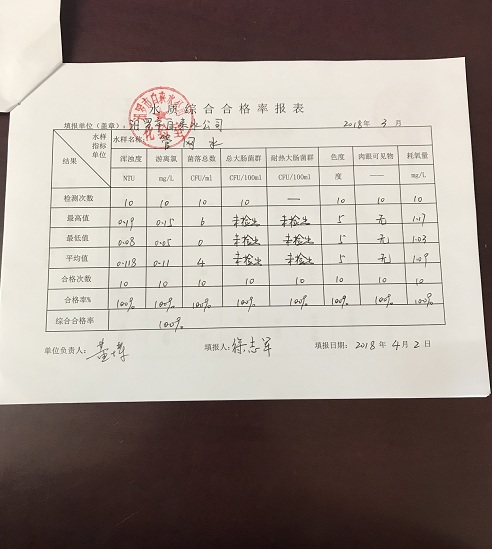 水质综合合格率报表
填报单位（盖章）：汨罗市自来水公司 2018年 3月
水样指标单位 水样名称 管网水
结果 浑浊度 游离氯 菌落总数 总大肠菌群 耐热大肠菌群 色度 肉眼可见物 耗氧量
NTU mg/L CFU/ml CFU/100ml CFU/100ml 度 —— mg/L
检测次数 10 10 10 10 — 10 10 10
最高值 0.19 0.15 6 未检出 未检出 5 无 1.17
最低值 0.08 0.05 0 未检出 未检出 5 无 1.03
平均值 0.118 0.11 4 未检出 未检出 5 无 1.09
合格次数 10 10 10 10 10 10 10 10
合格率% 100% 100% 100% 100% 100% 100% 100% 100%
综合合格率 100%
单位负责人： 填报人：徐志军 填报日期：2018年4月2日